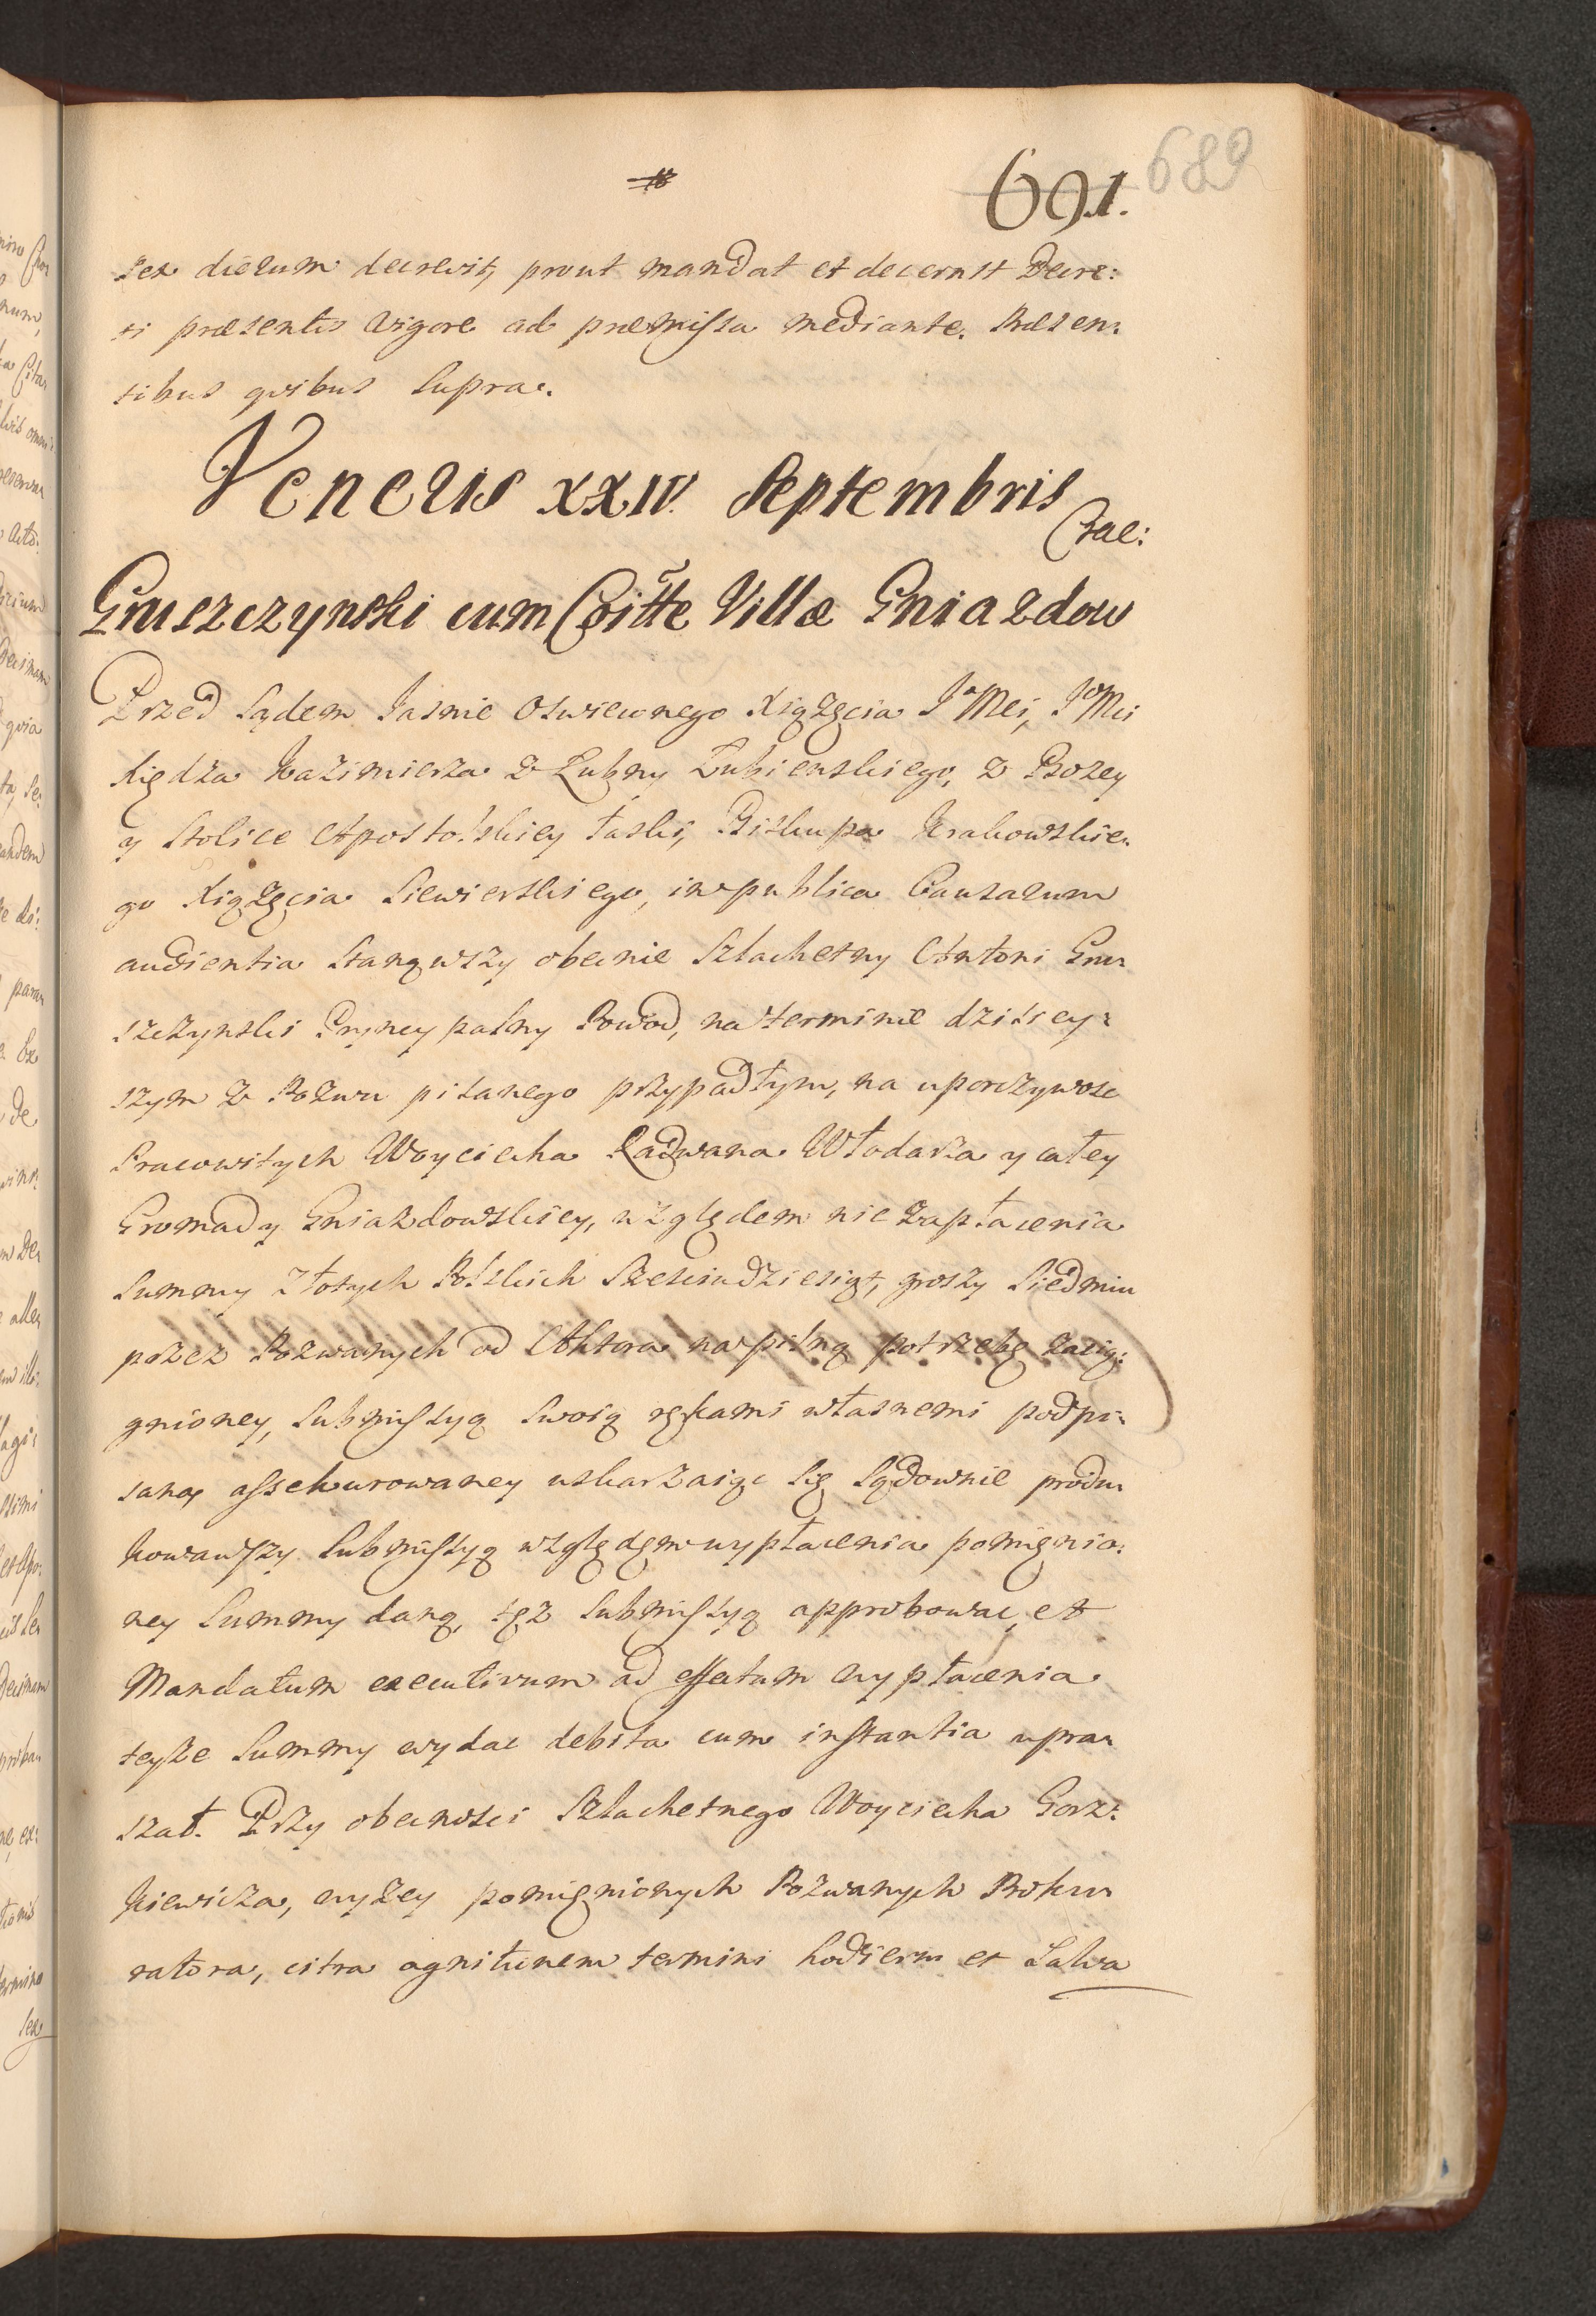 691. 689
sex dierum decrevit, prout mandat et decernit Decre:
ti præsentis vigore ad præmissa mediante. Præsen:
tibus quibus supra.
Veneris XXIV Septembris
Gruszczynski cum Coitte Villæ Gniazdow
Przed Sądem Jasnie Oswieconego Xiążęcia JoMci, JoMci
Xiędza Kazimierza z Łubny Łubienskiego, z Bozey
y Stolice Apostolskiey łaski, Biskupa Krakowskie:
go Xiążęcia Siewierskiego, in publica Causarum
audientia stanąwszy obecnie Szlachetny Antoni Gru:
szczynski Pryncypalny Powod, na terminie dzisiey:
szym z Pozwu pisanego przypadłym, na uporczywosc
Pracowitych Woyciecha Radwana Włodarza y całey
Gromady Gniazdowskiey, względem nie zapłacenia
Summy Złotych Polskich Szescudziesiąt, groszy Siedmiu
przez Pozwanych od Aktora na pilną potrzebę zacią:
gnioney, Submissyą swoią rękami własnemi podpi:
saną assekurowaney uskarzaiąc się Sądownie produ:
kowawszy Submissyą względem wypłacenia pomienio:
ney Summy daną, tęż Submissyą approbowac, et
Mandatum executivum ad effectum wypłacenia
teyże Summy wydac debita cum instantia upra:
szał. Przy obecnosci Szlachetnego Woyciecha Gorz:
kiewicza, wyżey pomienionych Pozwanych Proku
ratora, citra agnitionem termini hodierni et Salva